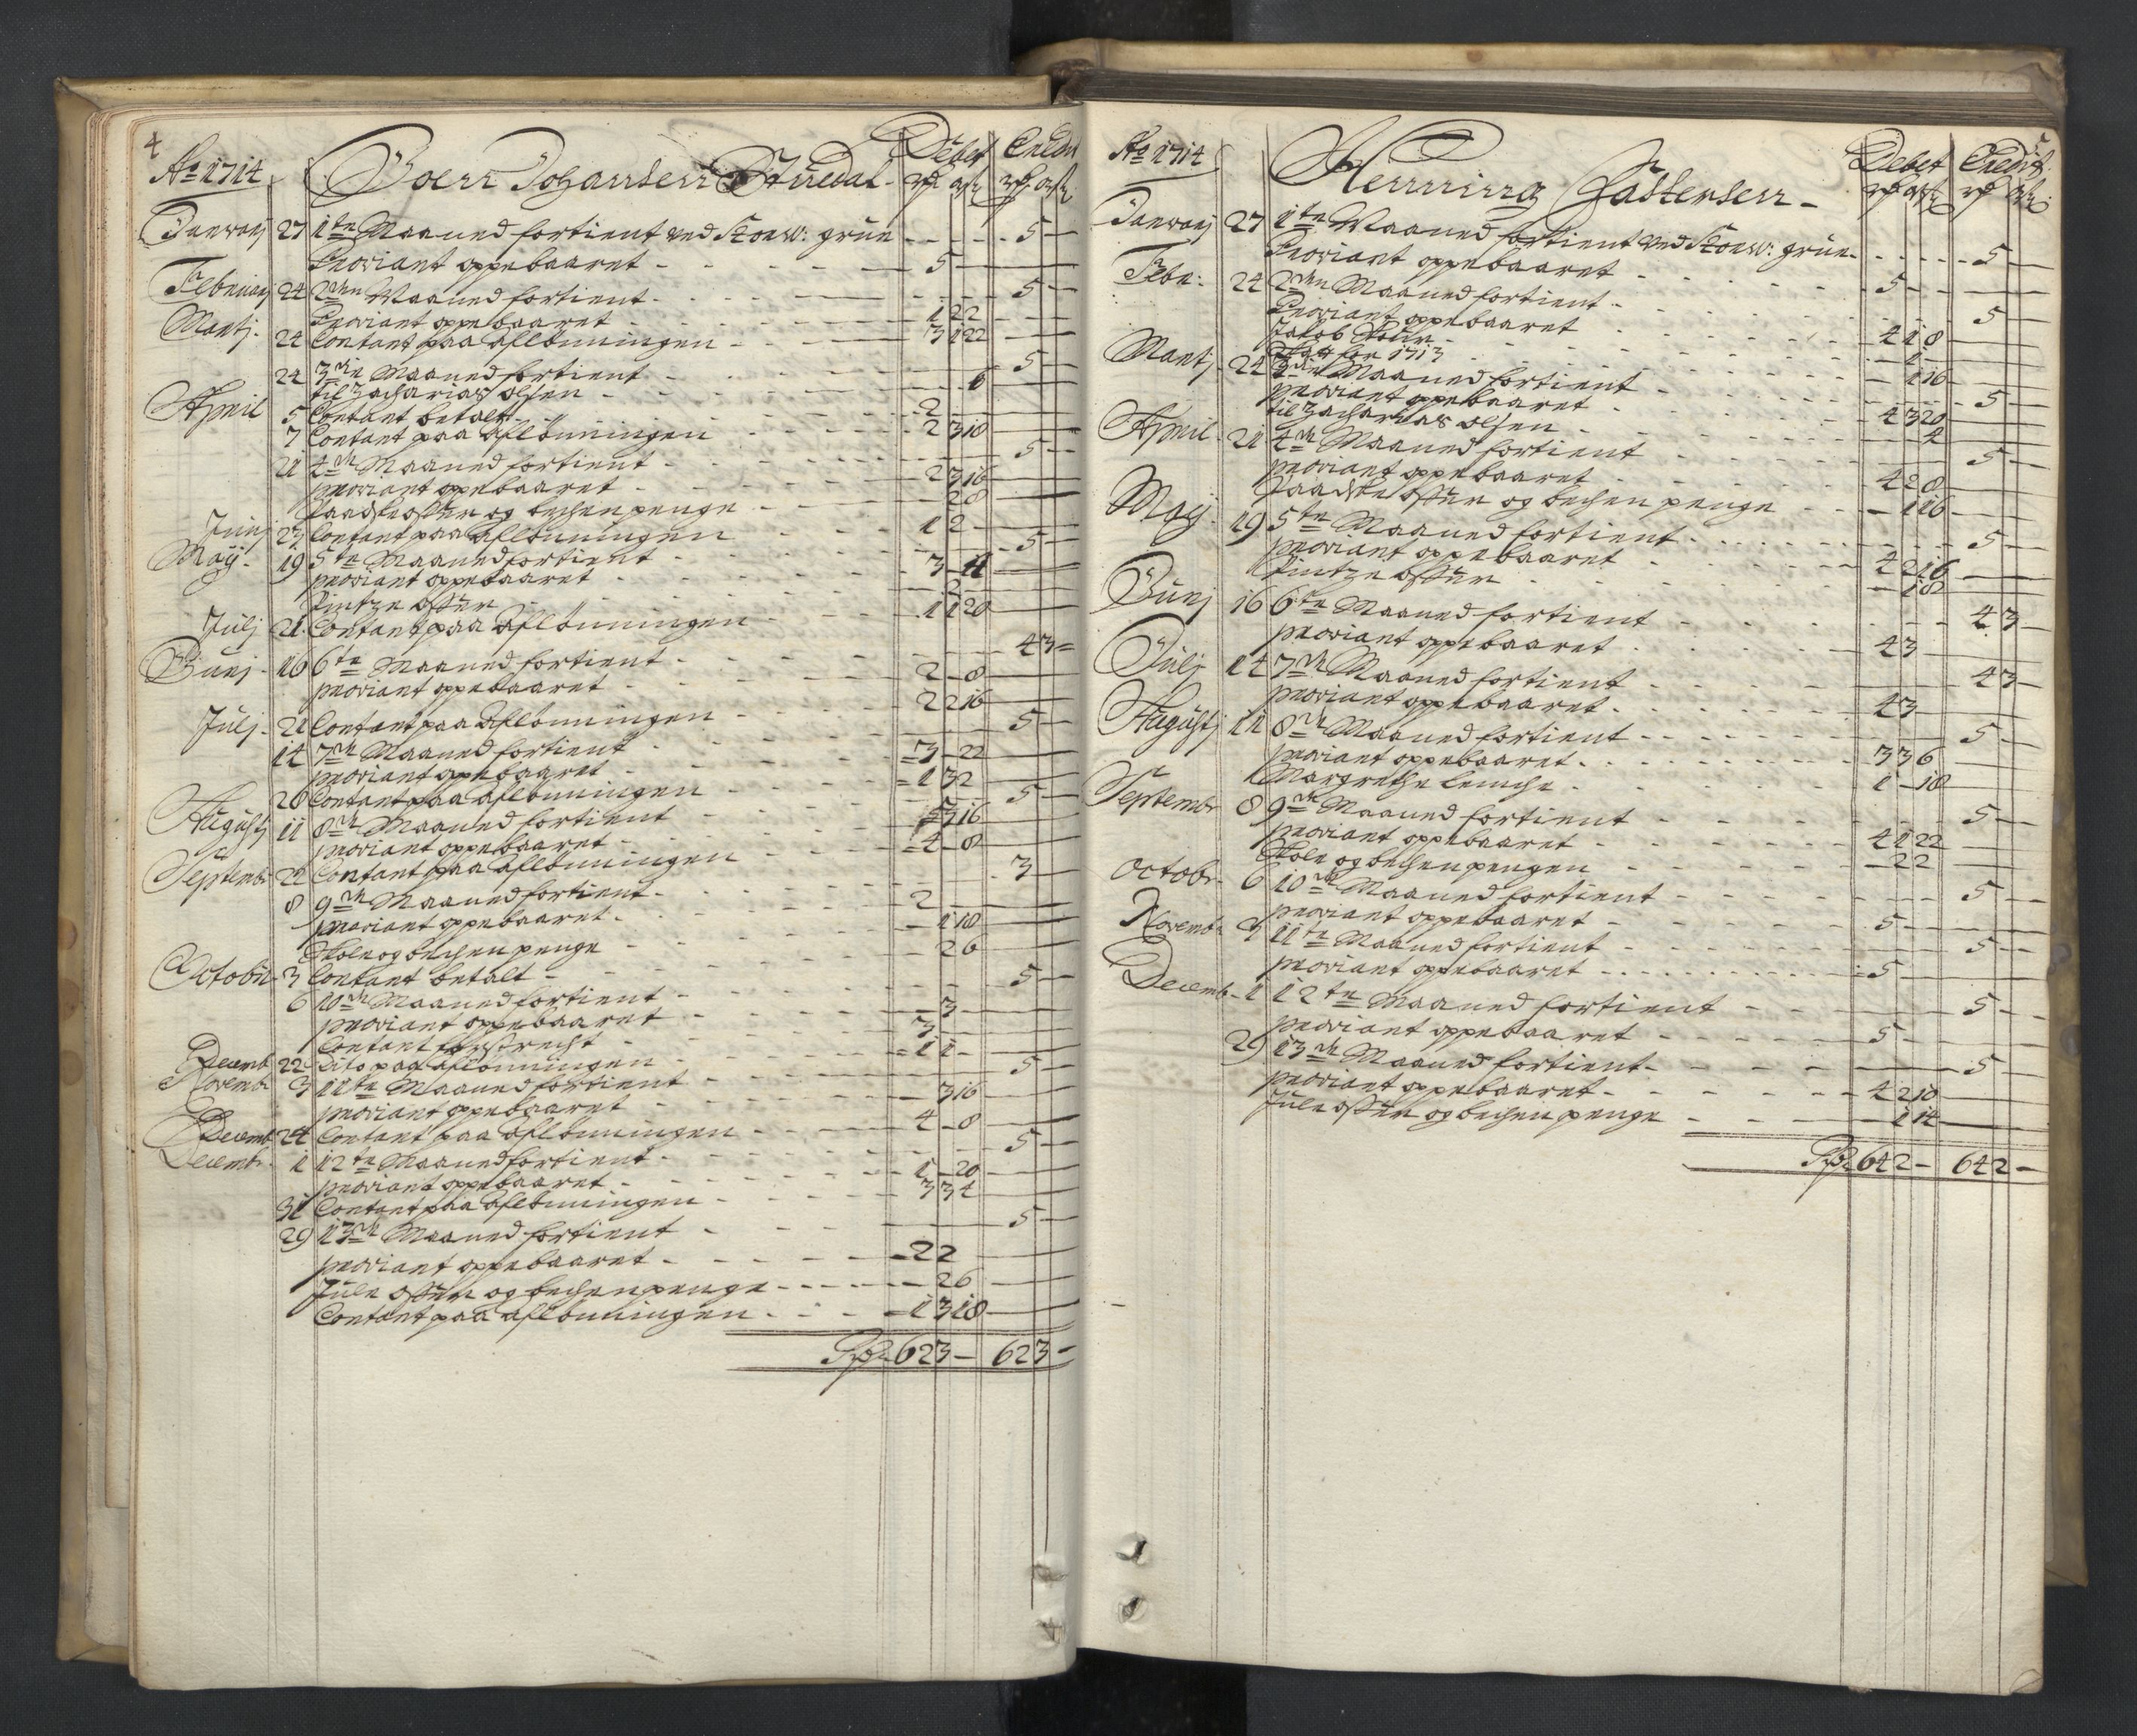 4
Ao 1714
Poell Johansen Stuedal
Debet Credit
rd ort s rd ort s
Januarj 27 1te Maaned fortient ved Storw: grue 5
Proviant oppebaaret 5
Februarj 24 2den Maaned fortient 5
Proviant oppebaaret 1 22
Martj 24 Contant paa Aflönningen 3 1 22
24 3de Maaned fortient 5
til Zacharias Olsen 6
April 5 Contant betalt 2
7 Contant paa Aflönningen 2 3 10
21 4de Maaned fortient 5
proviant oppebaaret 2 3 16
Paaske offer og bechen penge 20
Junj 23 Contant paa Aflönningen 1 2
Maÿ 19 5te Maaned fortient 5
proviant oppebaaret 3
Pintze offer
Julj 21 Contant paa Aflönningen 1 1 20
Junj 16 6te Maaned fortient 4 3
proviant oppebaaret 2 8
Julj 21 Contant paa Aflönningen 2 2 16
14 7de Maaned fortient 5
proviant oppebaaret 3 22
20 Contant paa Aflönningen 1 3 2
Augustj 11 8de Maaned fortient 5
proviant oppebaaret 3 16
Septembr 22 Contant paa Aflönningen 4 8
8 9de Maaned fortient 3
proviant oppebaaret 2
Skole og bechen penge 1 18
Octobr 3 Contant betalt 26
6 10de Maaned fortient 5
proviant oppebaaret 3
Contant forstrecht 3
Decemb 22 Dito paa aflönningen 1 1
Novembr 3 11te Maaned fortient 5
proviant oppebaaret 3 16
Decemb 24 Contant paa aflönningen 4 8
Decembr 1 12te Maaned fortient 5
proviant oppebaaret 1 20
31 Contant paa Aflönningen 3 3 4
29 13de Maaned fortient 5
proviant oppebaaret 2 2
Jule offer og bechen penge 26
Contant paa aflönningen 1 3 18
Rdr 62 3 62 3
Ao 1714
Henning Castensen
Debet Credit
rd ort s rd ort s
Januarj 27 1te Maaned fortient ved Storw: grue 5
Proviant oppebaaret 5
Febr: 24 2den Maaned fortient 5
Proviant oppebaaret 4 1 8
Jacob 1
Skatt for 1713 1 16
Martj 24 3de Maaned fortient 5
proviant oppebaaret 4 3 20
til Zacharias Olsen 4
April 21 4de Maaned fortient 5
proviant oppebaaret 4 2 8
Paaske offer og bechen penge 1 16
Maÿ 19 5te Maaned fortient 5
proviant oppebaaret 4 2 16
Pintze offer 18
Junj 16 6te Maaned fortient 4 3
proviant oppebaaret 4 3
Julj 14 7de Maaned fortient 4 3
proviant oppebaaret 4 3
Augustj 11 8de Maaned fortient 5
proviant oppebaaret 3 3 6
Margrethe Lemche 1 18
Septembr 8 9de Maaned fortient 5
proviant oppebaaret 4 1 22
Skole og bechen pengen 2 2
Octobr 6 10de Maaned fortient 5
proviant oppebaaret 5
Novembr 3 11te Maaned fortient 5
proviant oppebaaret 5
Decemb 1 12te Maaned fortient 5
proviant oppebaaret 5
29 13de Maaned fortient 5
proviant oppebaaret 4 2 10
Jule offer og bechen penge 1 14
Rdr 64 2 64 2